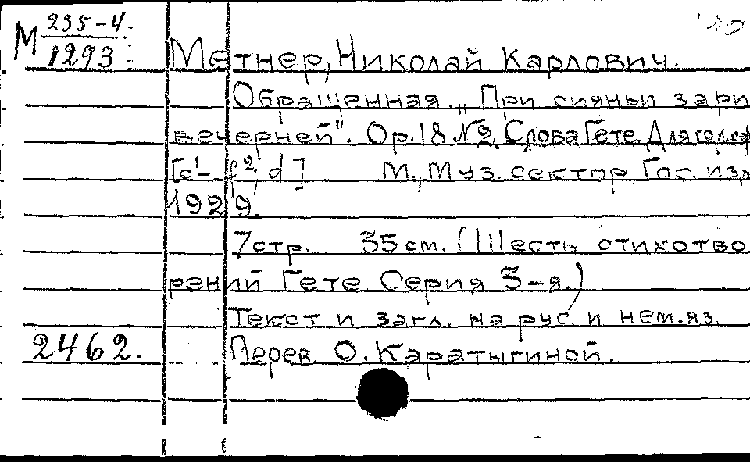 М 235-4
1293
Метнер, Николай Карлович.
Обращенная. „При сияньи зари
вечерней". Op.18 №2. Слова Гете. Для голоса
[c¹- f², d] М., Муз. сектор Гос. изд
1929.
7 стр. 35 см. (Шесть стихотво
рений Гете Серия 3-я.)
Текст и загл. на рус и нем.яз.
2462. Перев О. Каратыгиной.